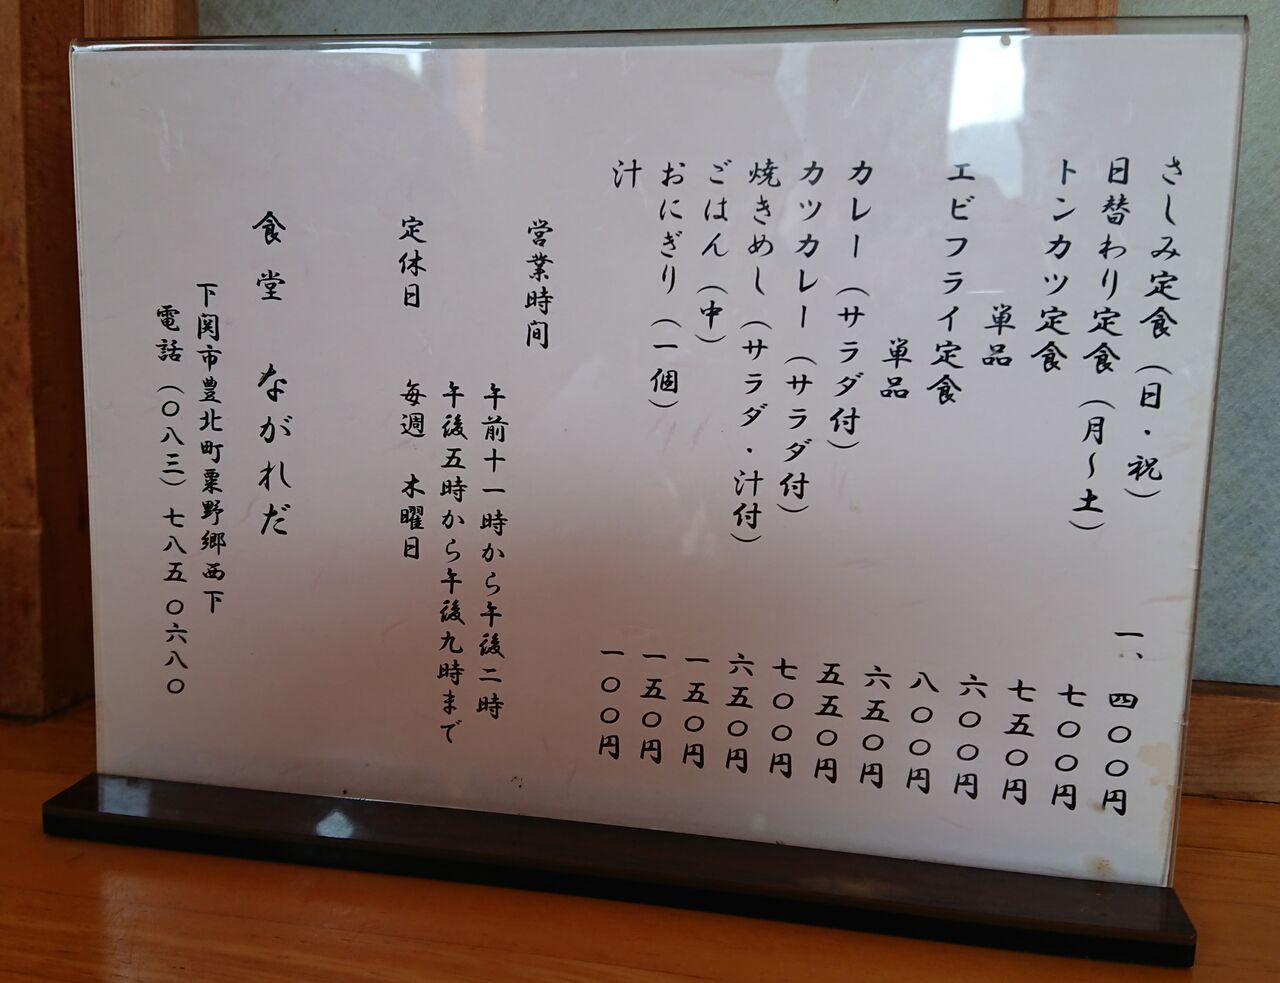 さしみ定食（日・祝） 一、四〇〇円
日替わり定食（月～土） 七〇〇円
トンカツ定食 七五〇円
単品 六〇〇円
エビフライ定食 八〇〇円
単品 六五〇円
カレー（サラダ付） 五五〇円
カツカレー（サラダ付） 七〇〇円
焼きめし（サラダ・汁付） 六五〇円
ごはん（中） 一五〇円
おにぎり（一個） 一五〇円
汁 一〇〇円
営業時間
午前十一時から午後二時
午後五時から午後九時まで
定休日 毎週 木曜日
食堂 ながれだ
下関市豊北町粟野郷西下
電話（〇八三）七八五〇六八〇